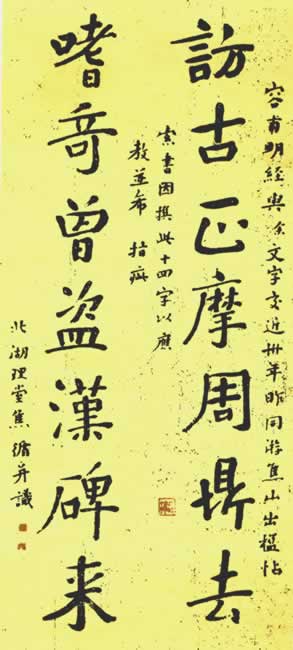 容甫明經與余文字交近卅年昨同游焦山出楹帖
訪古正摩周鼎去
索書因撰此十四字以應
教並希 指疵
嗜竒曾盗漢碑来
北湖理堂焦循并識